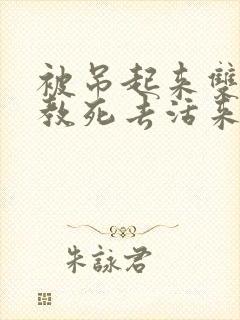 被吊起来雙
教死去活来
朱詠君